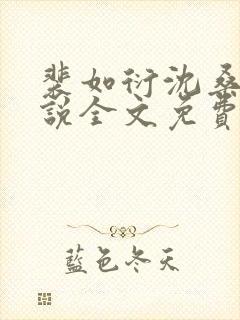 裴如衍沈桑
說全文免費
藍色冬天